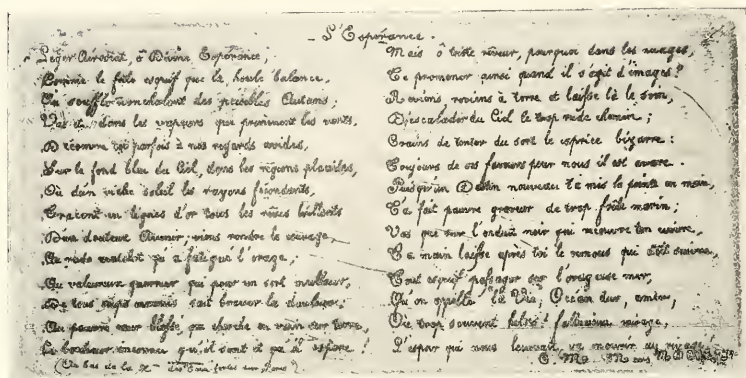 L'Espérance.
Léger Aérostat, ô Divine Espérance,
Comme le frêle esquif que la houle balance,
Au souffle nonchalant des paisibles Autans;
Vas dans les vapeurs que promènent les vents,
Découvre parfois à nos regards avides,
Sur le fond bleu du Ciel, dans les régions placides,
Où d'un riche soleil les rayons fécondants,
Tracent en lignes d'or tous les rêves brillants
D'un douteux Avenir viens rendre le courage,
Au rude matelot qu'a fatigué l'orage,
Au valureux guerrier qui pour un sort meilleur,
De tous maux sait braver la douleur;
Au pauvre cœur blessé qui cherche en vain sur terre,
Le bonheur inconnu qu'il sent et qu'il espère!
Mais ô triste rêveur, pourquoi dans les nuages,
Te promener ainsi quand il s'agit d'images?
Reviens, reviens à terre et laisse là le soin,
D'escalader du Ciel le trop rude chemin;
Crains de tenter du sort le caprice bizarre:
Toujours de ses faveurs pour nous il est avare.
Puisqu'un Destin nouveau t'a mis la pointe en main,
T'a fait pauvre graveur de trop frêle marin;
Vas que sur l'enduit noir qui recouvre ton cuivre,
Ta main laisse après toi le remous qui doit suivre,
Tout esquif passager sur l'orageuse mer,
Qu'on appelle la Vie, Océan dur, amer,
Où trop souvent hélas! fallacieux mirage,
L'espoir qui nous leurrait va mourir au rivage!
(Au bas de la Xe